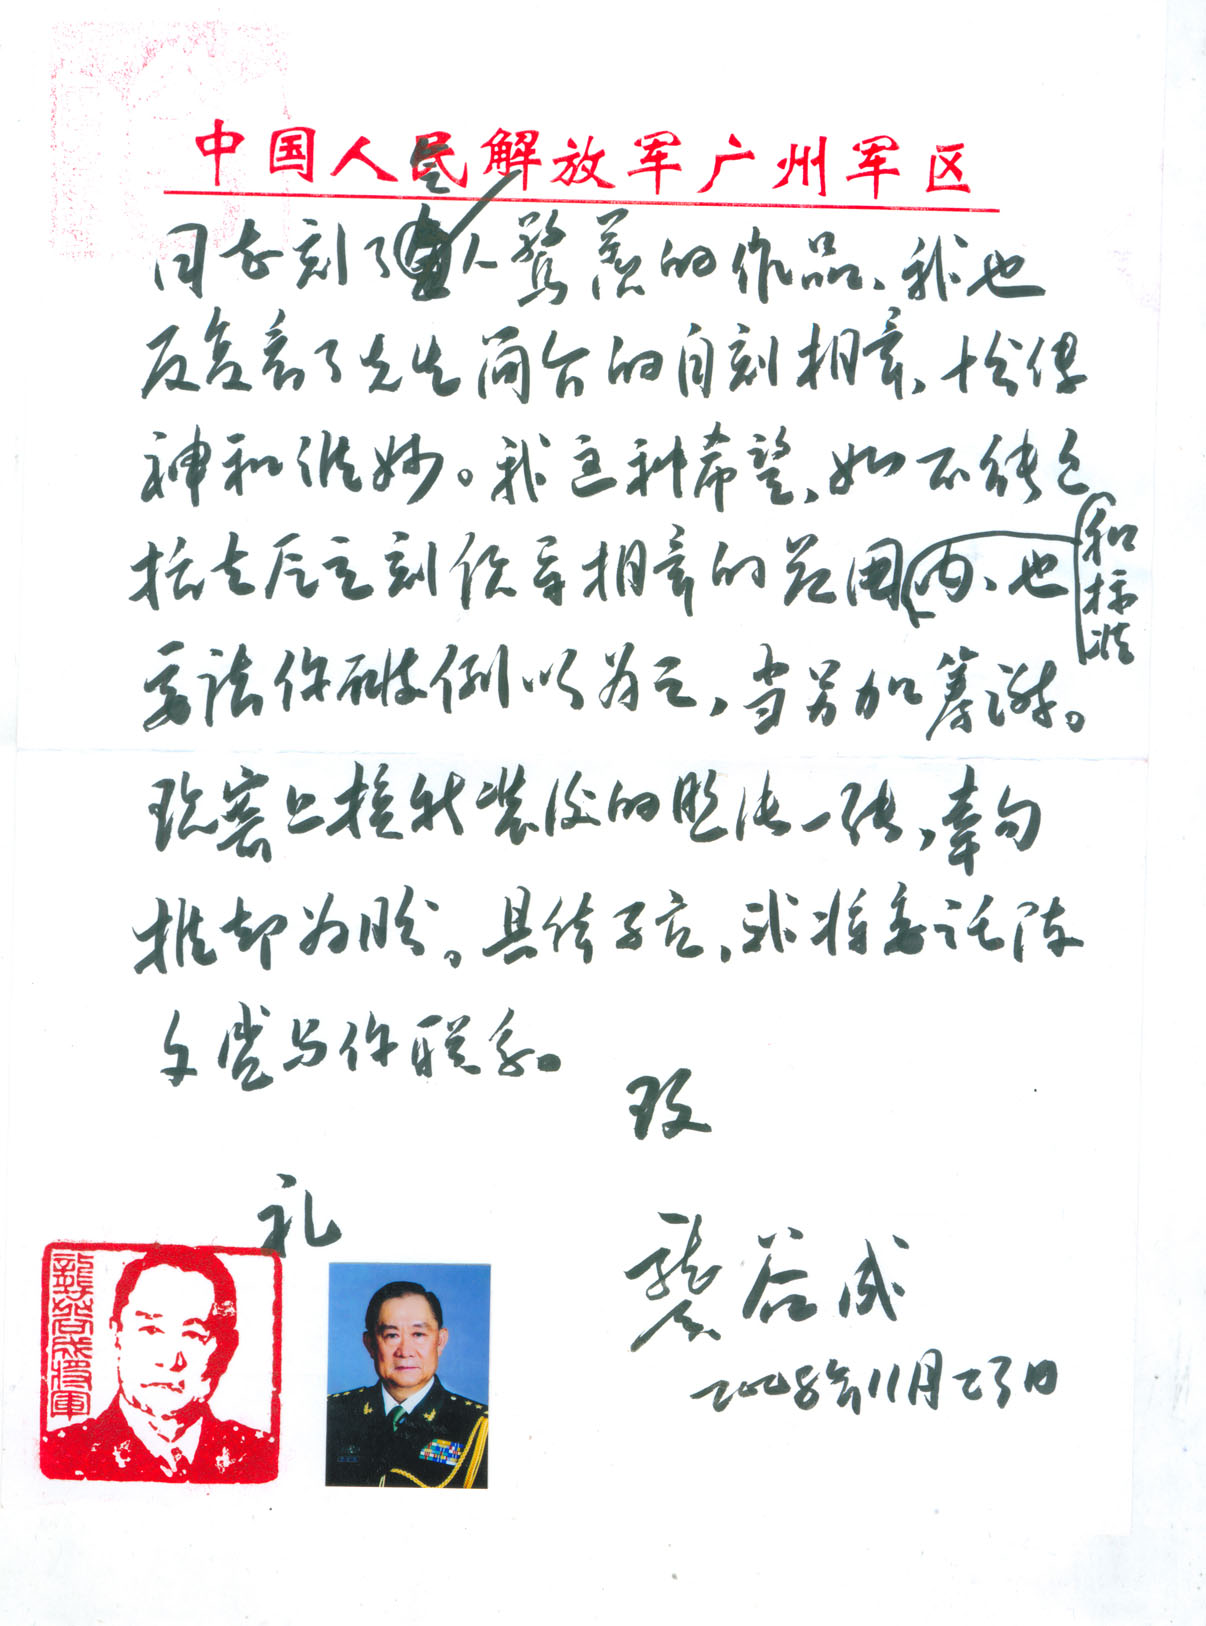 中国人民解放军广州军区
同志刻了令人惊羡的作品、我也
反复看了先生简介的自刻相章、十分传
神和准妙。我这种希望、如不能包
括在应该刻领导相章的范围内、也
和标准
要请你破例以为之，当另加筹谢。
现寄上授我装后的照片一张，幸勿
推却为盼。具体事宜，我将委托陈
文 与你联系。
致
礼
龚谷成
二〇〇五年11月23日
龔谷成将軍